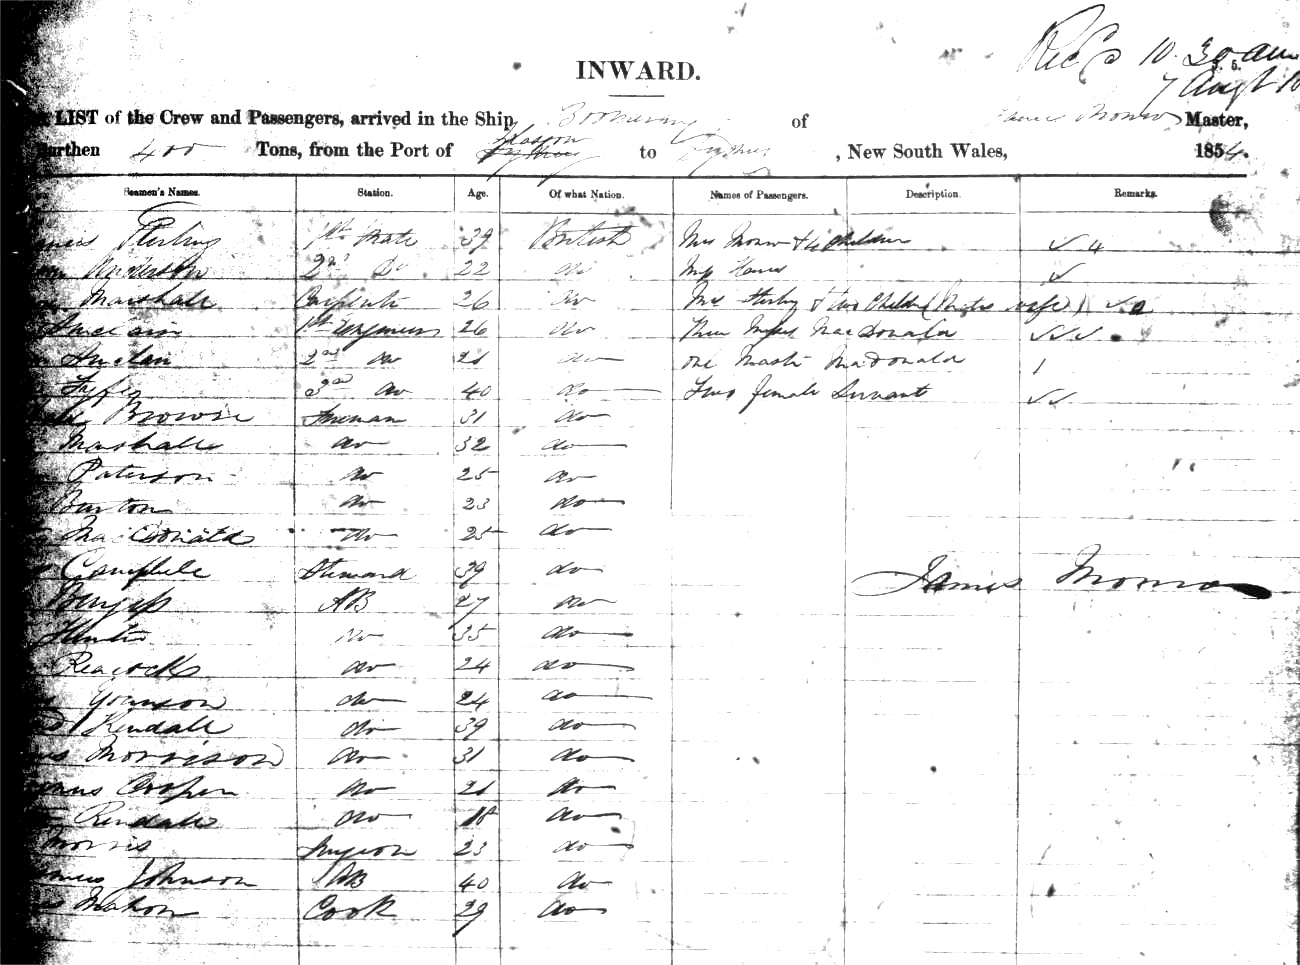 Recd 10.30 am
7 Augt
INWARD.
LIST of the Crew and Passengers, arrived in the Ship Boomerang of James Monro Master,
Burthen 400 Tons, from the Port of Glasgow to Sydney, New South Wales, 1854.
Seamen's Names. Station. Age. Of what Nation. Names of Passengers. Description. Remarks.
Sterling 1st Mate 39 British Mrs Monro & 4 Children ✓ 4
Anderson 2nd Do 22 do Miss ✓
Marshall Carpenter 26 do Mrs Sterling & two Children (Mates wife) 1 ✓ 2
Sinclair 1st Engineer 26 do Three Misses MacDonald ✓✓✓
2nd do 21 do one Mastr MacDonald 1
Fyfe 3rd do 40 do Two female Servant ✓✓
Browne Fireman 31 do
Marshall do 32 do
Paterson do 25 do
Burton do 23 do
MacDonald do 25 do
Campbell Steward 39 do
Burgess AB 27 do
Hunter do 35 do
Peacock do 24 do
Younson do 24 do
Kendall do 39 do
Morrison do 31 do
Cooper do 21 do
Kendall do 18 do
Morris Surgeon 23 do
Johnson AB 40 do
Mahon Cook 29 do
James Monro